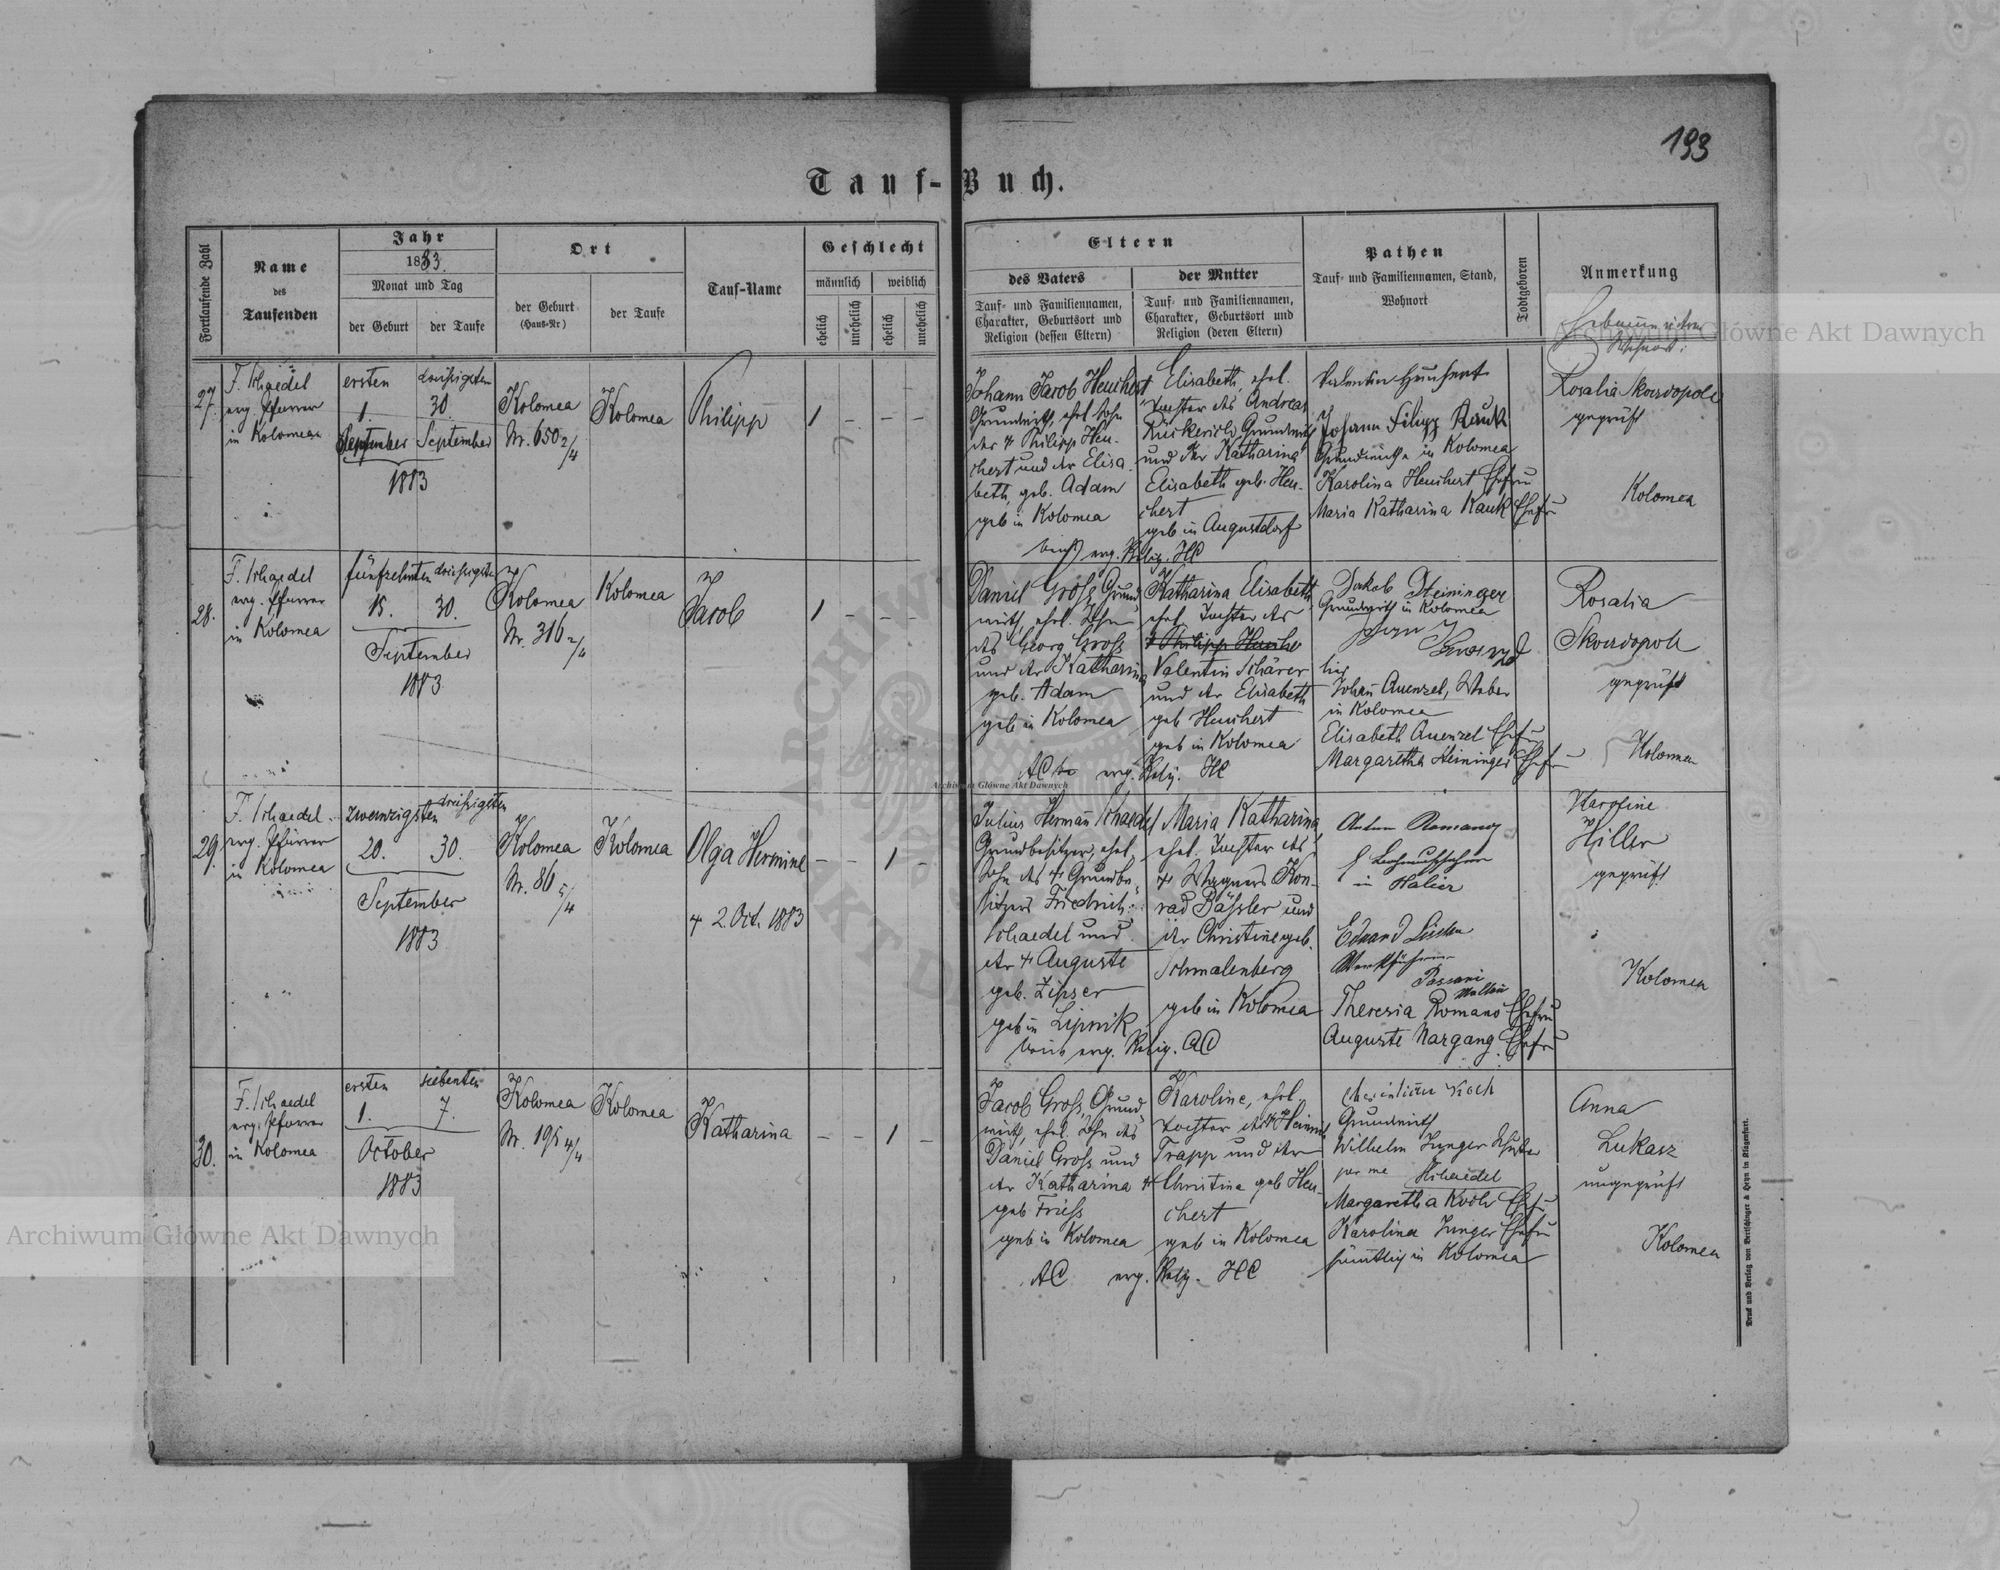 193
Tauf-Buch.
Fortlaufende Zahl
Name
des
Taufenden
Jahr
1883.
Monat und Tag
der Geburt
der Taufe
Ort
der Geburt
(Haus-Nr)
der Taufe
Tauf-Name
Geschlecht
männlich
weiblich
ehelich
unehelich
ehelich
unehelich
Eltern
des Vaters
Tauf- und Familiennamen,
Charakter, Geburtsort und
Religion (dessen Eltern)
der Mutter
Tauf- und Familiennamen,
Charakter, Geburtsort und
Religion (deren Eltern)
Pathen
Tauf- und Familiennamen, Stand,
Wohnort
Todtgeboren
Anmerkung
Wohnort:
27.
F. Schaedel
evg. Pfarrer
in Kolomea
ersten
1.
dreißigsten
30.
September
September
1883
Kolomea
Nr. 650 2/4
Kolomea
Philipp
1 - - -
Johann Jacob Heuchert
Grundwirth, ehel. Sohn
des + Philipp Heu-
chert und der Elisa
beth, geb. Adam
geb in Kolomea
Elisabeth, ehel.
Tochter des Andreas
Rückerich, Grundwirth
und der Katharina
Elisabeth geb. Heu-
chert
geb in Augustdorf
beide evg. Relig. HC
Valentin Heuchert
Johann Filipp Kauk
Grundwirthe in Kolomea
Karolina Heuchert Ehefr
Maria Katharina Kauk Ehefr
Rosalia Skowdopole
geprüft
Kolomea
28.
F. Schaedel
evg. Pfarrer
in Kolomea
fünfzehnten
15.
dreißigsten
30.
September
1883
Kolomea
Nr. 316 2/4
Kolomea
Jacob
1 - - -
Daniel Groß, Grund
wirth, ehel. Sohn
des Georg Groß
und der Katharina
geb. Adam
geb in Kolomea
Katharina Elisabeth
ehel. Tochter des
+ Philipp Heuche
Valentin Schärer
und der Elisabeth
geb Heuchert
geb in Kolomea
AC evg. Relig. HC
Jakob Steininger
Grundwirth in Kolomea
Johann Auenzel, Weber
in Kolomea
Elisabeth Auenzel Ehefr
Margaretha Steininger Ehefr
Rosalia
Skowdopole
geprüft
Kolomea
29.
F. Schaedel
evg. Pfarrer
in Kolomea
zwanzigsten
20.
dreißigsten
30.
September
1883
Kolomea
Nr. 86 5/4
Kolomea
Olga Hermine
+ 2. Oct. 1883
- - 1 -
Julius Herman Schaedel
Grundbesitzer, ehel.
Sohn des + Grundbe-
sitzers Friedrich
Schaedel und
der + Auguste
geb. Zipser
geb in Lipnik
Maria Katharina
ehel. Tochter des
+ Wagners Kon-
rad Bäßler und
der Christine geb.
Schmalenberg
geb in Kolomea
beide evg. Relig. AC
Anton Romano
in Halicz
Eduard
Werkführer
Pascani
Moldau
Theresia Romano Ehefr
Auguste Nargang Ehefr
Karoline
Hiller
geprüft
Kolomea
30.
F. Schaedel
evg. Pfarrer
in Kolomea
ersten
1.
siebenten
7.
October
1883
Kolomea
Nr. 195 4/4
Kolomea
Katharina
- - 1 -
Jacob Groß, Grund
wirth, ehel. Sohn des
Daniel Groß und
der Katharina +
geb Frieß
geb in Kolomea
Karoline, ehel.
Tochter des + Heinrich
Trapp und der
Christina geb Heu-
chert
geb in Kolomea
AC evg. Relig. HC
Koch
Grundwirth
Wilhelm Junger Schuster
per me Schaedel
Margaretha Koch Ehefr
Karolina Junger Ehefr
sämtlich in Kolomea
Anna
Lukasz
ungeprüft
Kolomea
Druck und Verlag von Bertschinger & Heyn in Klagenfurt.
Archiwum Główne Akt Dawnych
Archiwum Główne Akt Dawnych
Archiwum Główne Akt Dawnych